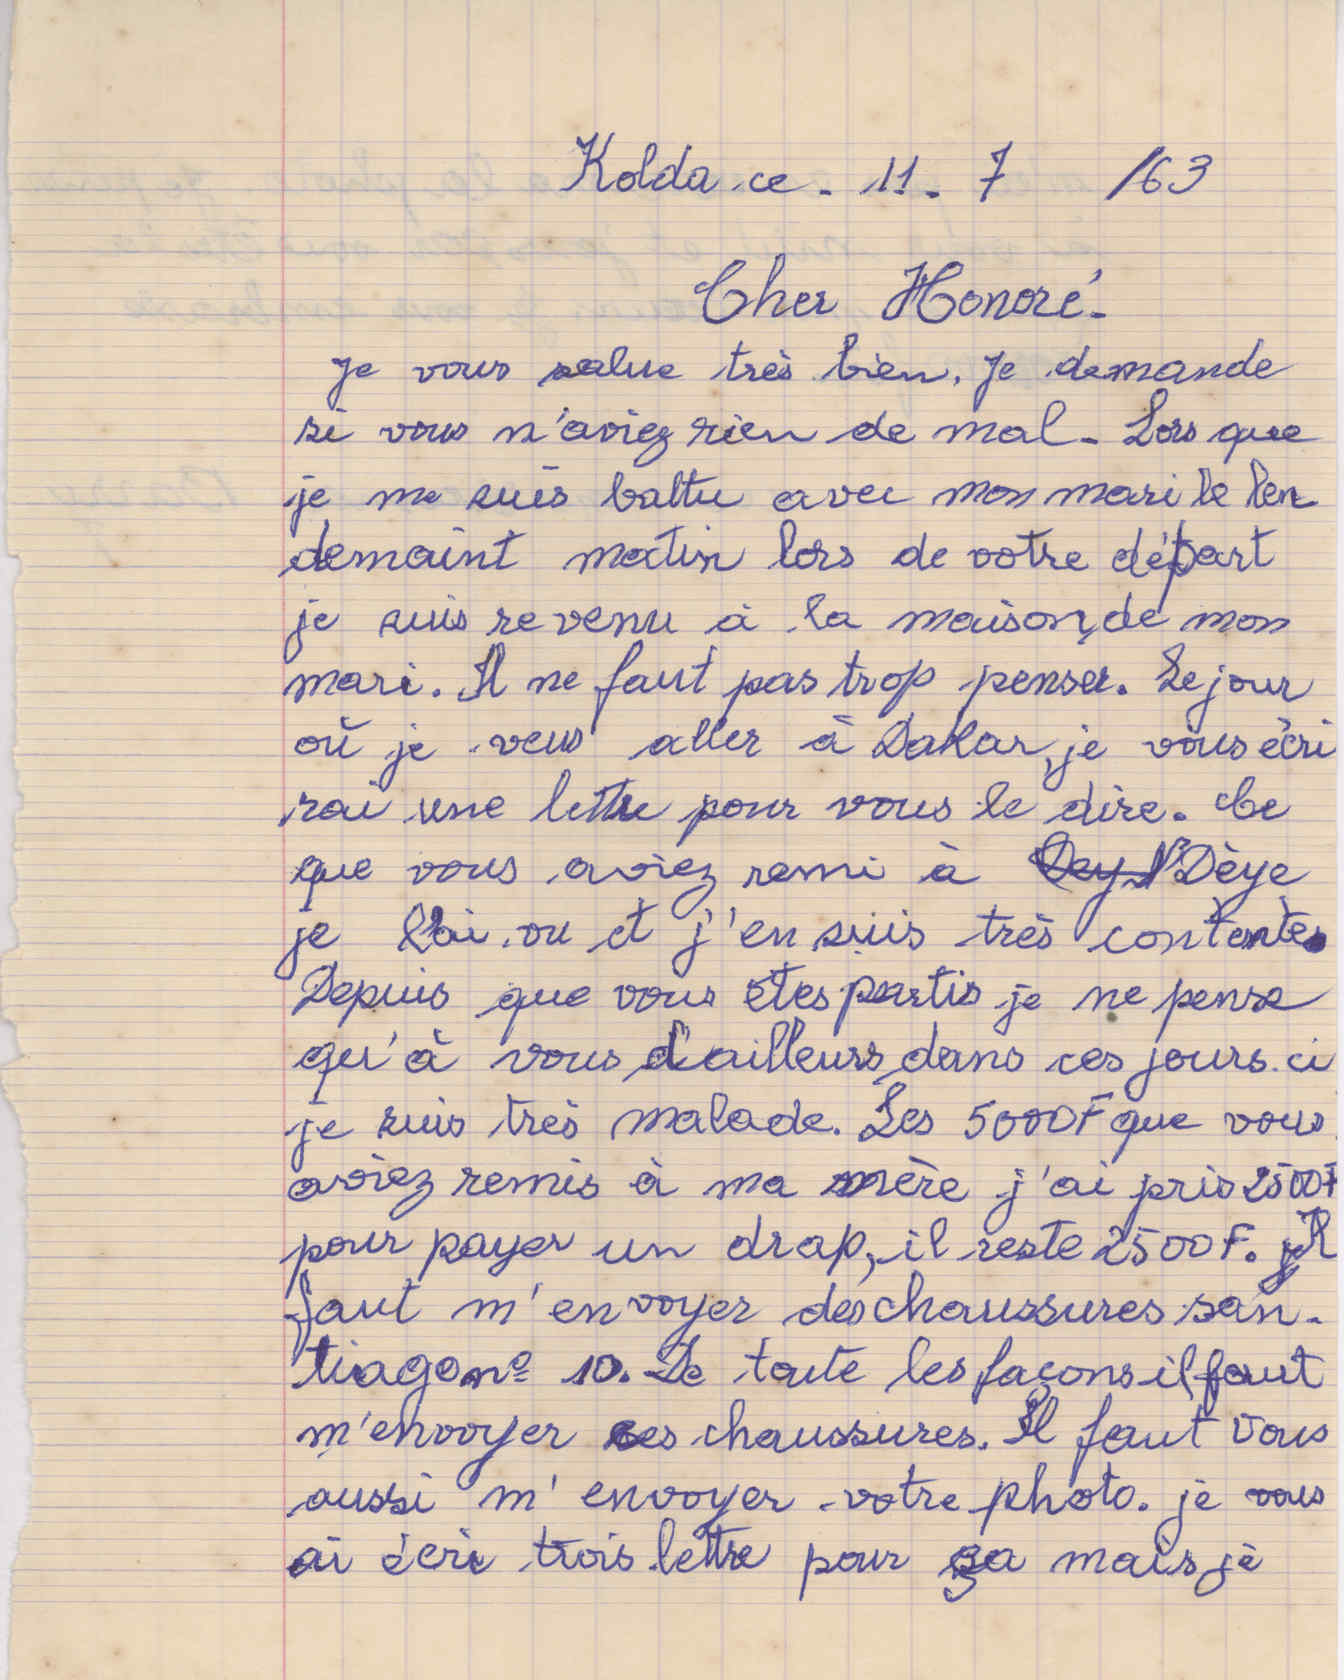 Kolda ce - 11 - 7 /63
Cher Honoré -
Je vous salue très bien. Je demande
si vous n'aviez rien de mal - Lors que
je me suis battu avec mon mari le len
demaint matin lors de votre départ
je suis revenu à la maison de mon
mari. Il ne faut pas trop penser. Le jour
où je veus aller à Dakar, je vous écri
rai une lettre pour vous le dire. Ce
que vous aviez remi à Dèye
je l'ai vu et j'en suis très contente.
Depuis que vous êtes partis je ne pense
qu'à vous d'ailleurs dans ces jours-ci
je suis très malade. Les 5000F que vous
aviez remis à ma mère j'ai pris 2500F
pour payer un drap, il reste 2500F. Il
faut m'envoyer des chaussures san-
tiago nº 10. De toute les façons il faut
m'envoyer ces chaussures. Il faut vous
aussi m'envoyer votre photo. je vous
ai écri trois lettre pour ça mais je